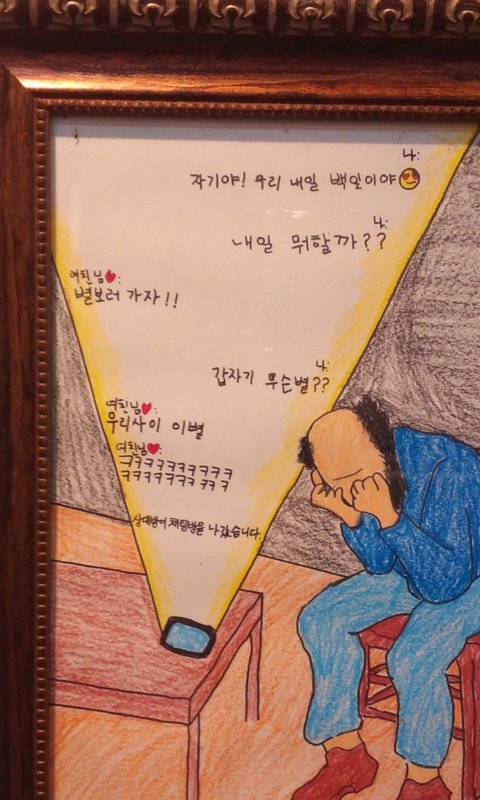 나:
자기야! 우리 내일 백일이야
나:
내일 뭐할까??
여친님:
별보러 가자!!
나:
갑자기 무슨별??
여친님:
우리사이 이별
여친님:
ㅋㅋㅋㅋㅋㅋㅋㅋㅋㅋ
ㅋㅋㅋㅋㅋㅋㅋ ㅋㅋ ㅋ
상대방이 채팅방을 나갔습니다.